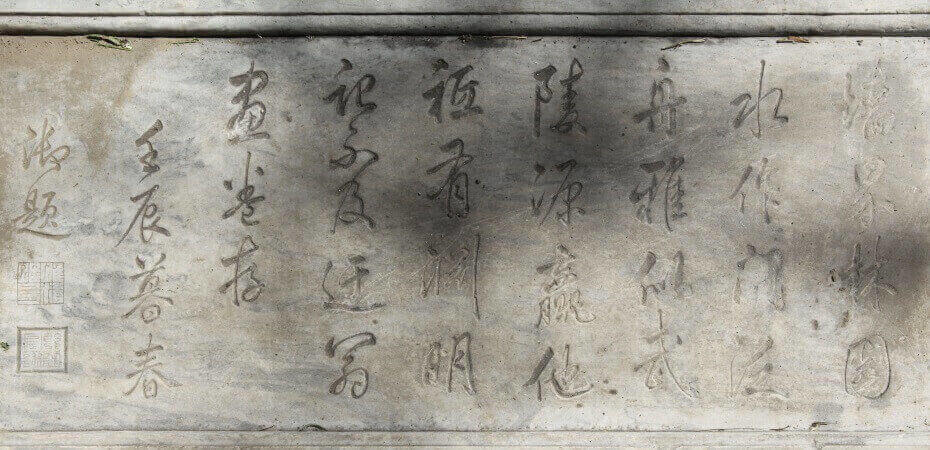 墻界林園
水作門泛
舟雅似武
陵源贏他
祗有淵明
記不及迂翁
畫卷存
壬辰暮春
御題